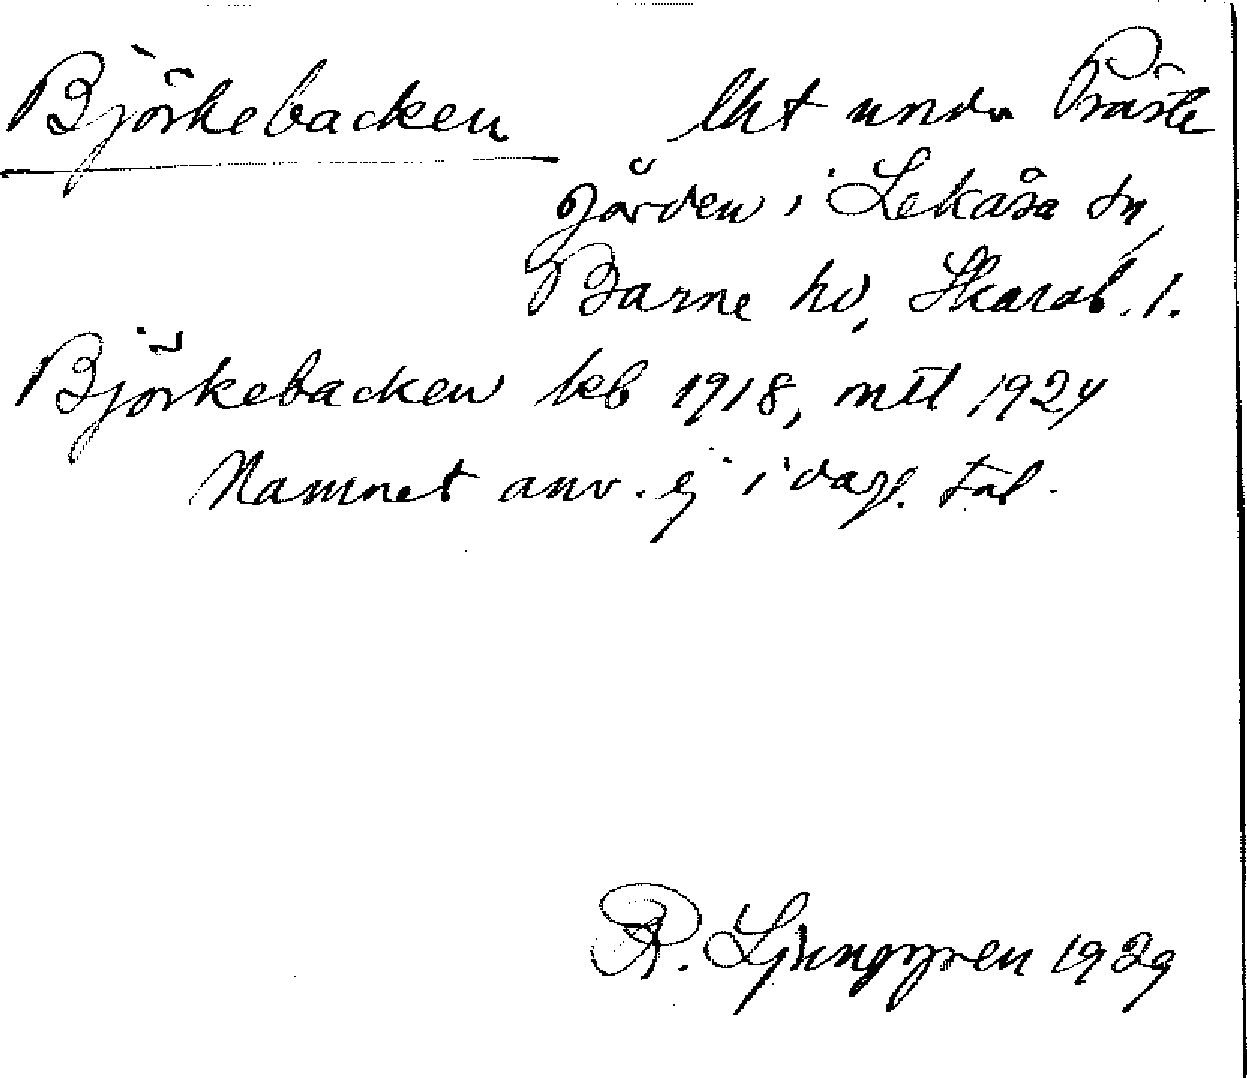 Björkebacken lht under Präste
gården i Lekåsa sn,
Barne hd, Skarab. l.
Björkebacken kb 1918, mtl 1924
Namnet anv. ej i dagl. tal.
R. Ljunggren 1929